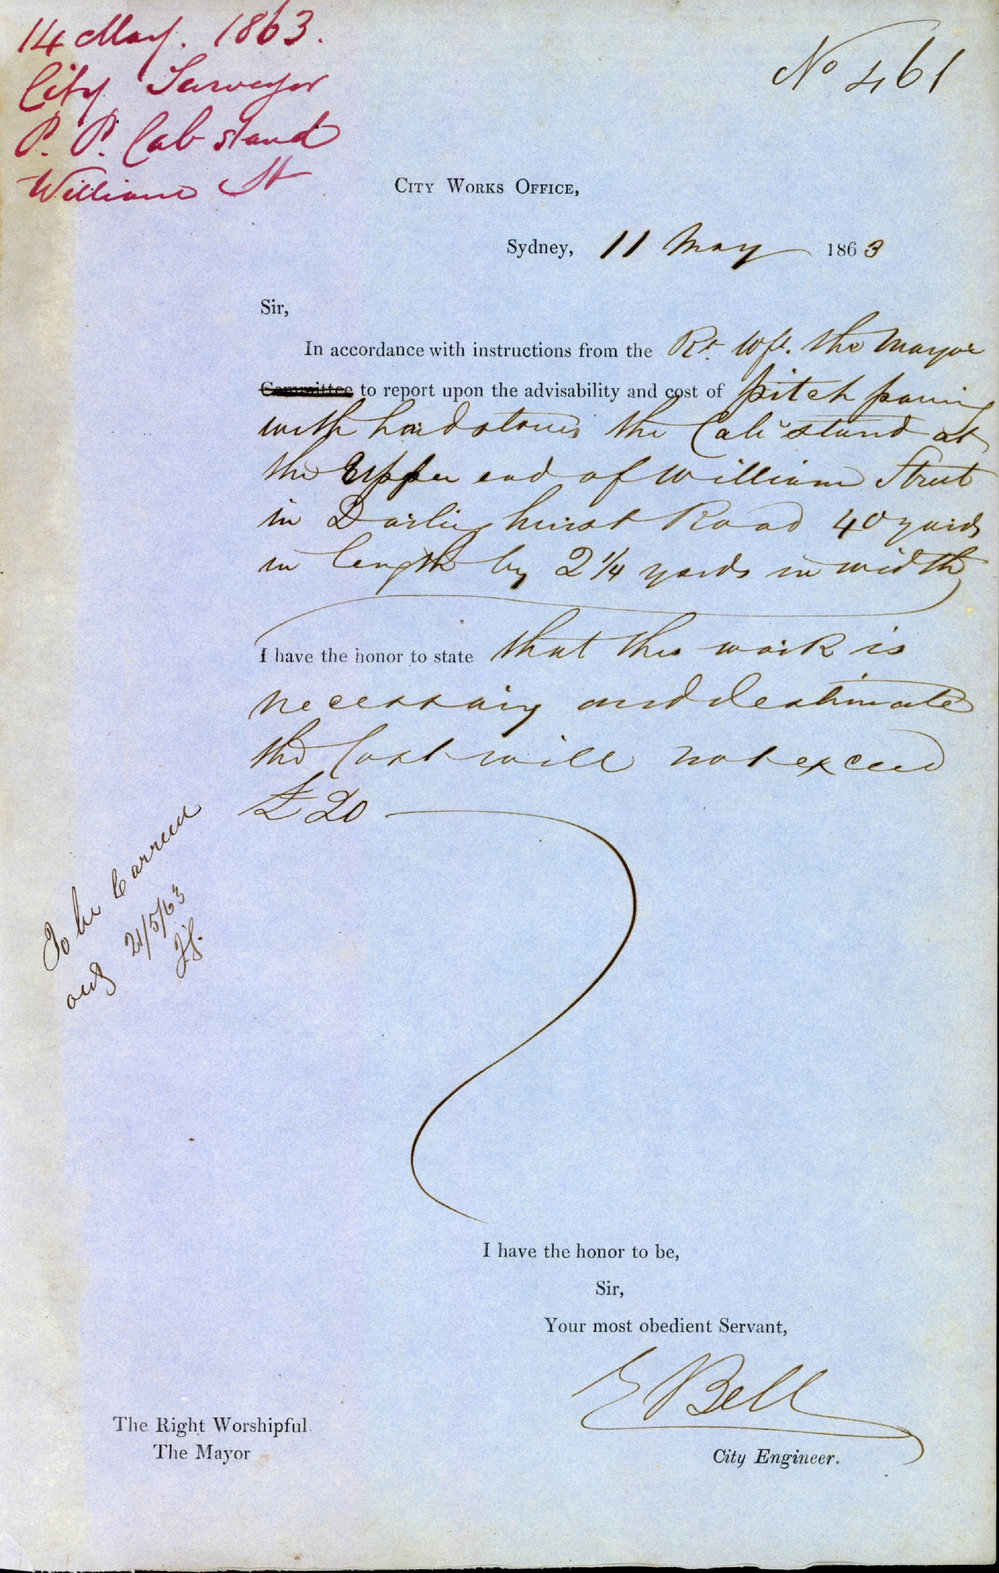 14 May. 1863.
City Surveyor
P. P. Cab stand
William St
No 461
City Works Office,
Sydney, 11 May 1863
Sir,
In accordance with instructions from the Rt. Wfl. the Mayor
Committee to report upon the advisability and cost of pitch paving
with hard stones the Cab stand at
the Upper end of William Street
in Darlinghurst Road 40 yards
in length by 2 1/4 yards in width
I have the honor to state that this work is
necessary and estimate
the Cost will not exceed
£20
To be Carried
out 21/5/63
I have the honor to be,
Sir,
Your most obedient Servant,
E Bell
City Engineer.
The Right Worshipful
The Mayor